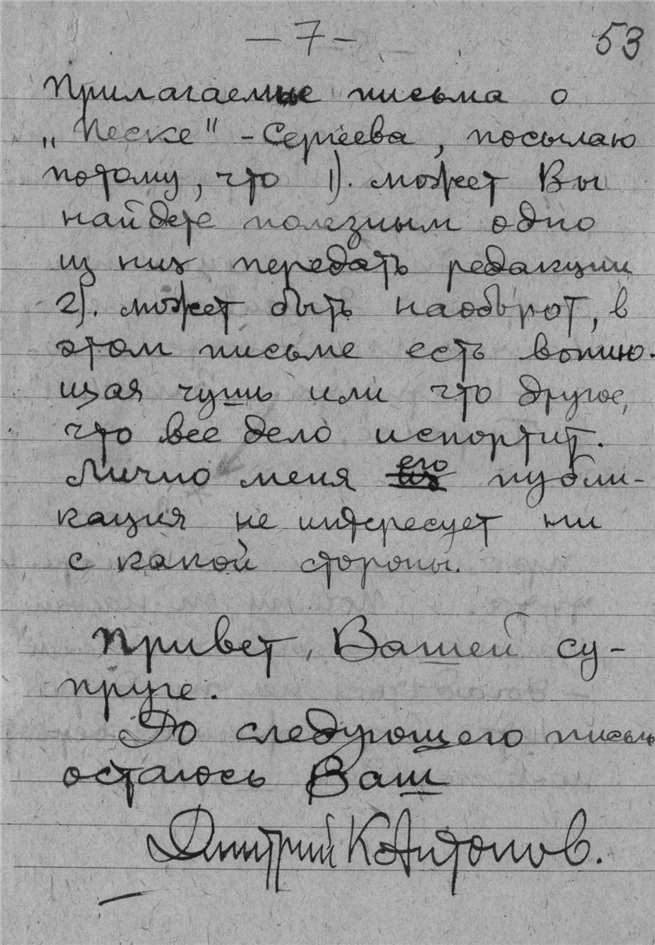 – 7 – 53
Прилагаемые письма о
„Песке" – Сергеева, посылаю
потому, что 1). может Вы
найдете полезным одно
из них передать редакции
2). может быть наоборот, в
этом письме есть вопию-
щая чушь или что другое,
что все дело испортит.
Лично меня его публи-
кация не интересует ни
с какой стороны.
Привет, Вашей су-
пруге.
До следующего письма
остаюсь Ваш
Дмитрий К Антонов.